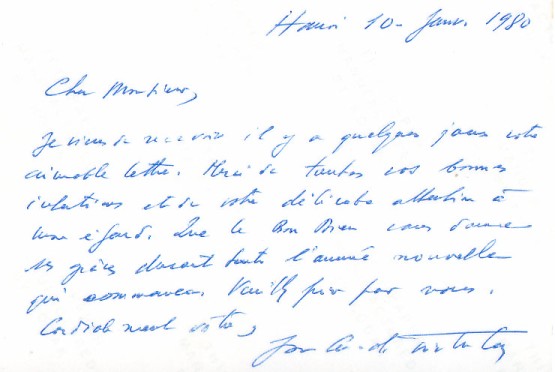 Hanoi 10 - Janv. 1980
Cher Monsieur,
Je viens de recevoir il y a quelques jours votre
aimable lettre. Merci de toutes vos bonnes
intentions et de votre délicate attention à
mon égard. Que le Bon Dieu vous donne
ses grâces durant toute l'année nouvelle
qui commence. Veuillez prier pour nous.
Cordialement vôtre,